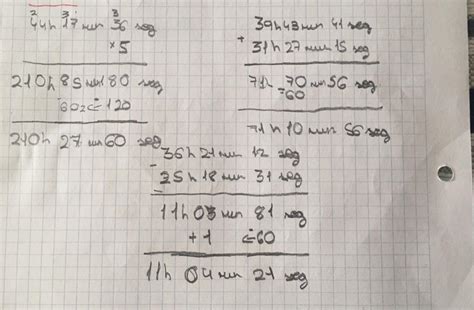 2 3 3
44h 17 min 36 seg
× 5
210h 85 min 180 seg
-60 2c=120
210h 27 min 60 seg
39h 43 min 41 seg
+ 31h 27 min 15 seg
71h 70 min 56 seg
-60
71h 10 min 56 seg
36h 21 min 12 seg
- 25h 18 min 31 seg
11h 03 min 81 seg
+1 -60
11h 04 min 21 seg